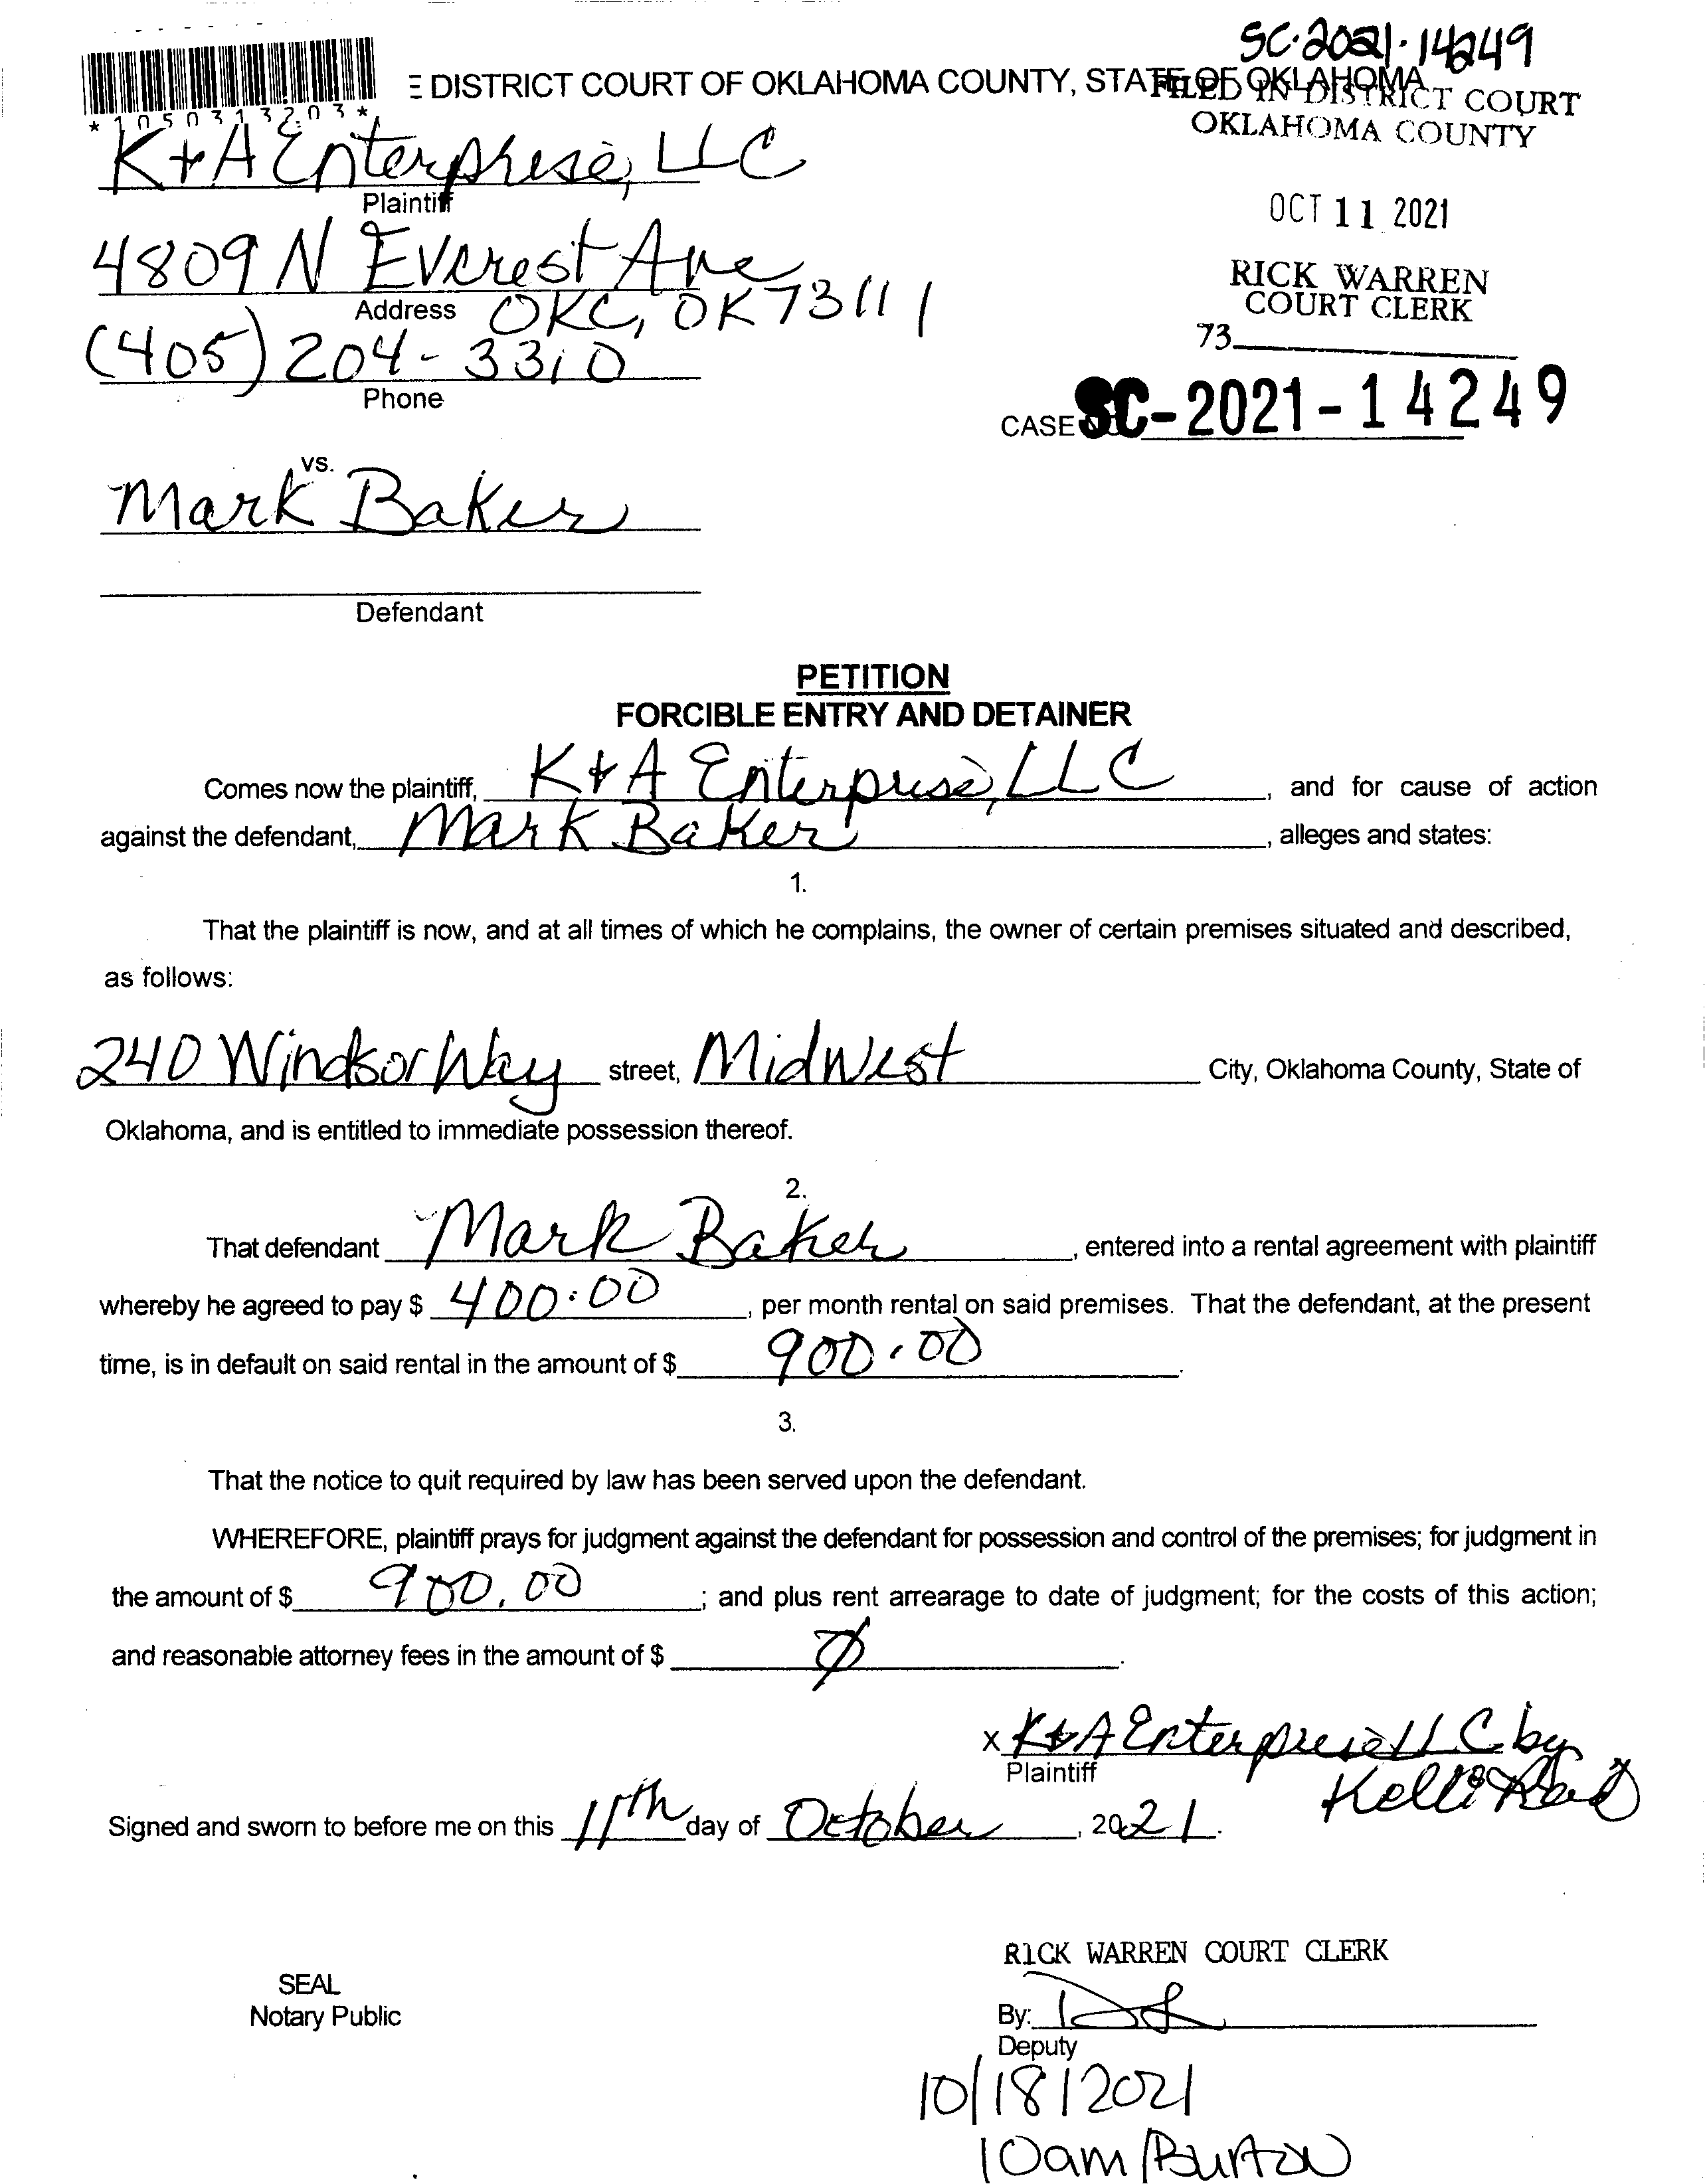 SC-2021-14249
E DISTRICT COURT OF OKLAHOMA COUNTY, STATE OF OKLAHOMA
FILED IN DISTRICT COURT
OKLAHOMA COUNTY
*1050313203*
K+A Enterprise, LLC
Plaintiff
OCT 11 2021
4809 N Everest Ave
RICK WARREN
COURT CLERK
Address OKC, OK 73111
73
(405) 204-3310
Phone
CASE SC-2021-14249
vs.
Mark Baker
Defendant
PETITION
FORCIBLE ENTRY AND DETAINER
Comes now the plaintiff, K+A Enterprise, LLC, and for cause of action
against the defendant, Mark Baker, alleges and states:
1.
That the plaintiff is now, and at all times of which he complains, the owner of certain premises situated and described,
as follows:
240 Windsor Way street, Midwest City, Oklahoma County, State of
Oklahoma, and is entitled to immediate possession thereof.
2.
That defendant Mark Baker, entered into a rental agreement with plaintiff
whereby he agreed to pay $ 400.00, per month rental on said premises. That the defendant, at the present
time, is in default on said rental in the amount of $ 900.00.
3.
That the notice to quit required by law has been served upon the defendant.
WHEREFORE, plaintiff prays for judgment against the defendant for possession and control of the premises; for judgment in
the amount of $ 900.00; and plus rent arrearage to date of judgment; for the costs of this action;
and reasonable attorney fees in the amount of $ Ø.
X K+A Enterprise LLC by
Plaintiff
Kelli Reid
Signed and sworn to before me on this 11th day of October, 2021.
RICK WARREN COURT CLERK
SEAL
Notary Public
By:
Deputy
10/18/2021
10am/Burton